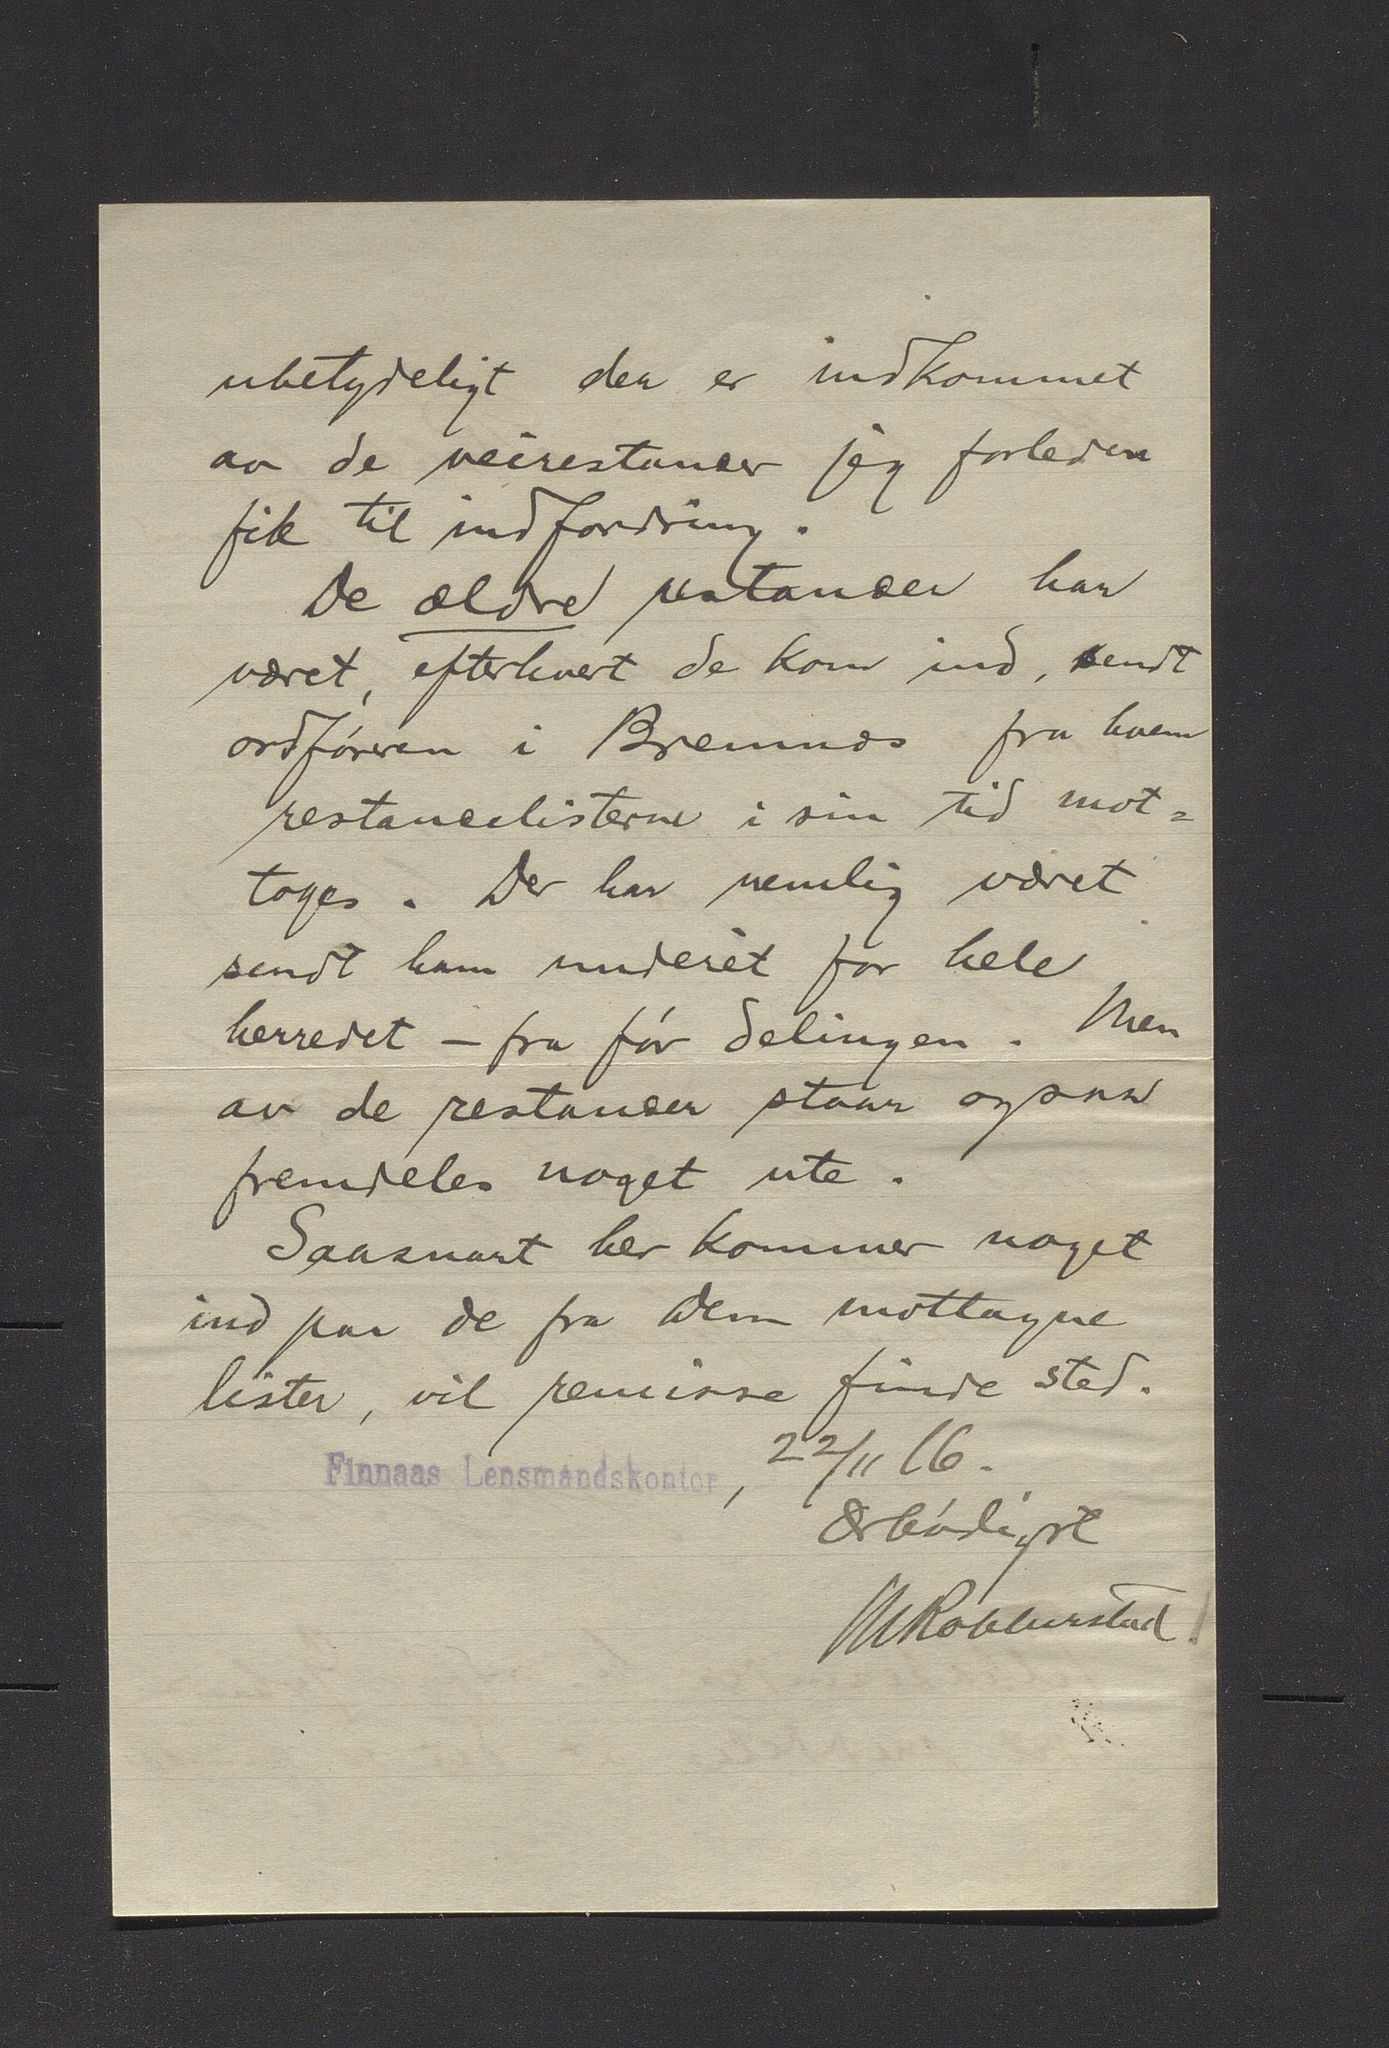 ubetydeligt der er indkommet
av de veirestanser jeg forleden
fik til indfordring.
De ældre restanser har
været, efterhvert de kom ind, sendt
ordføreren i Bremnes fra hvem
restanselisterne i sin tid mot=
toges. Der har nemlig været
sendt ham underet for hele
herredet – fra før delingen. Men
av de restanser staar ogsaa
fremdeles noget ute.
Saasnart her kommer noget
ind paa de fra Dem mottagne
lister, vil remisse finde sted.
Finnaas Lensmandskontor, 22/11 16.
Ærbødigst